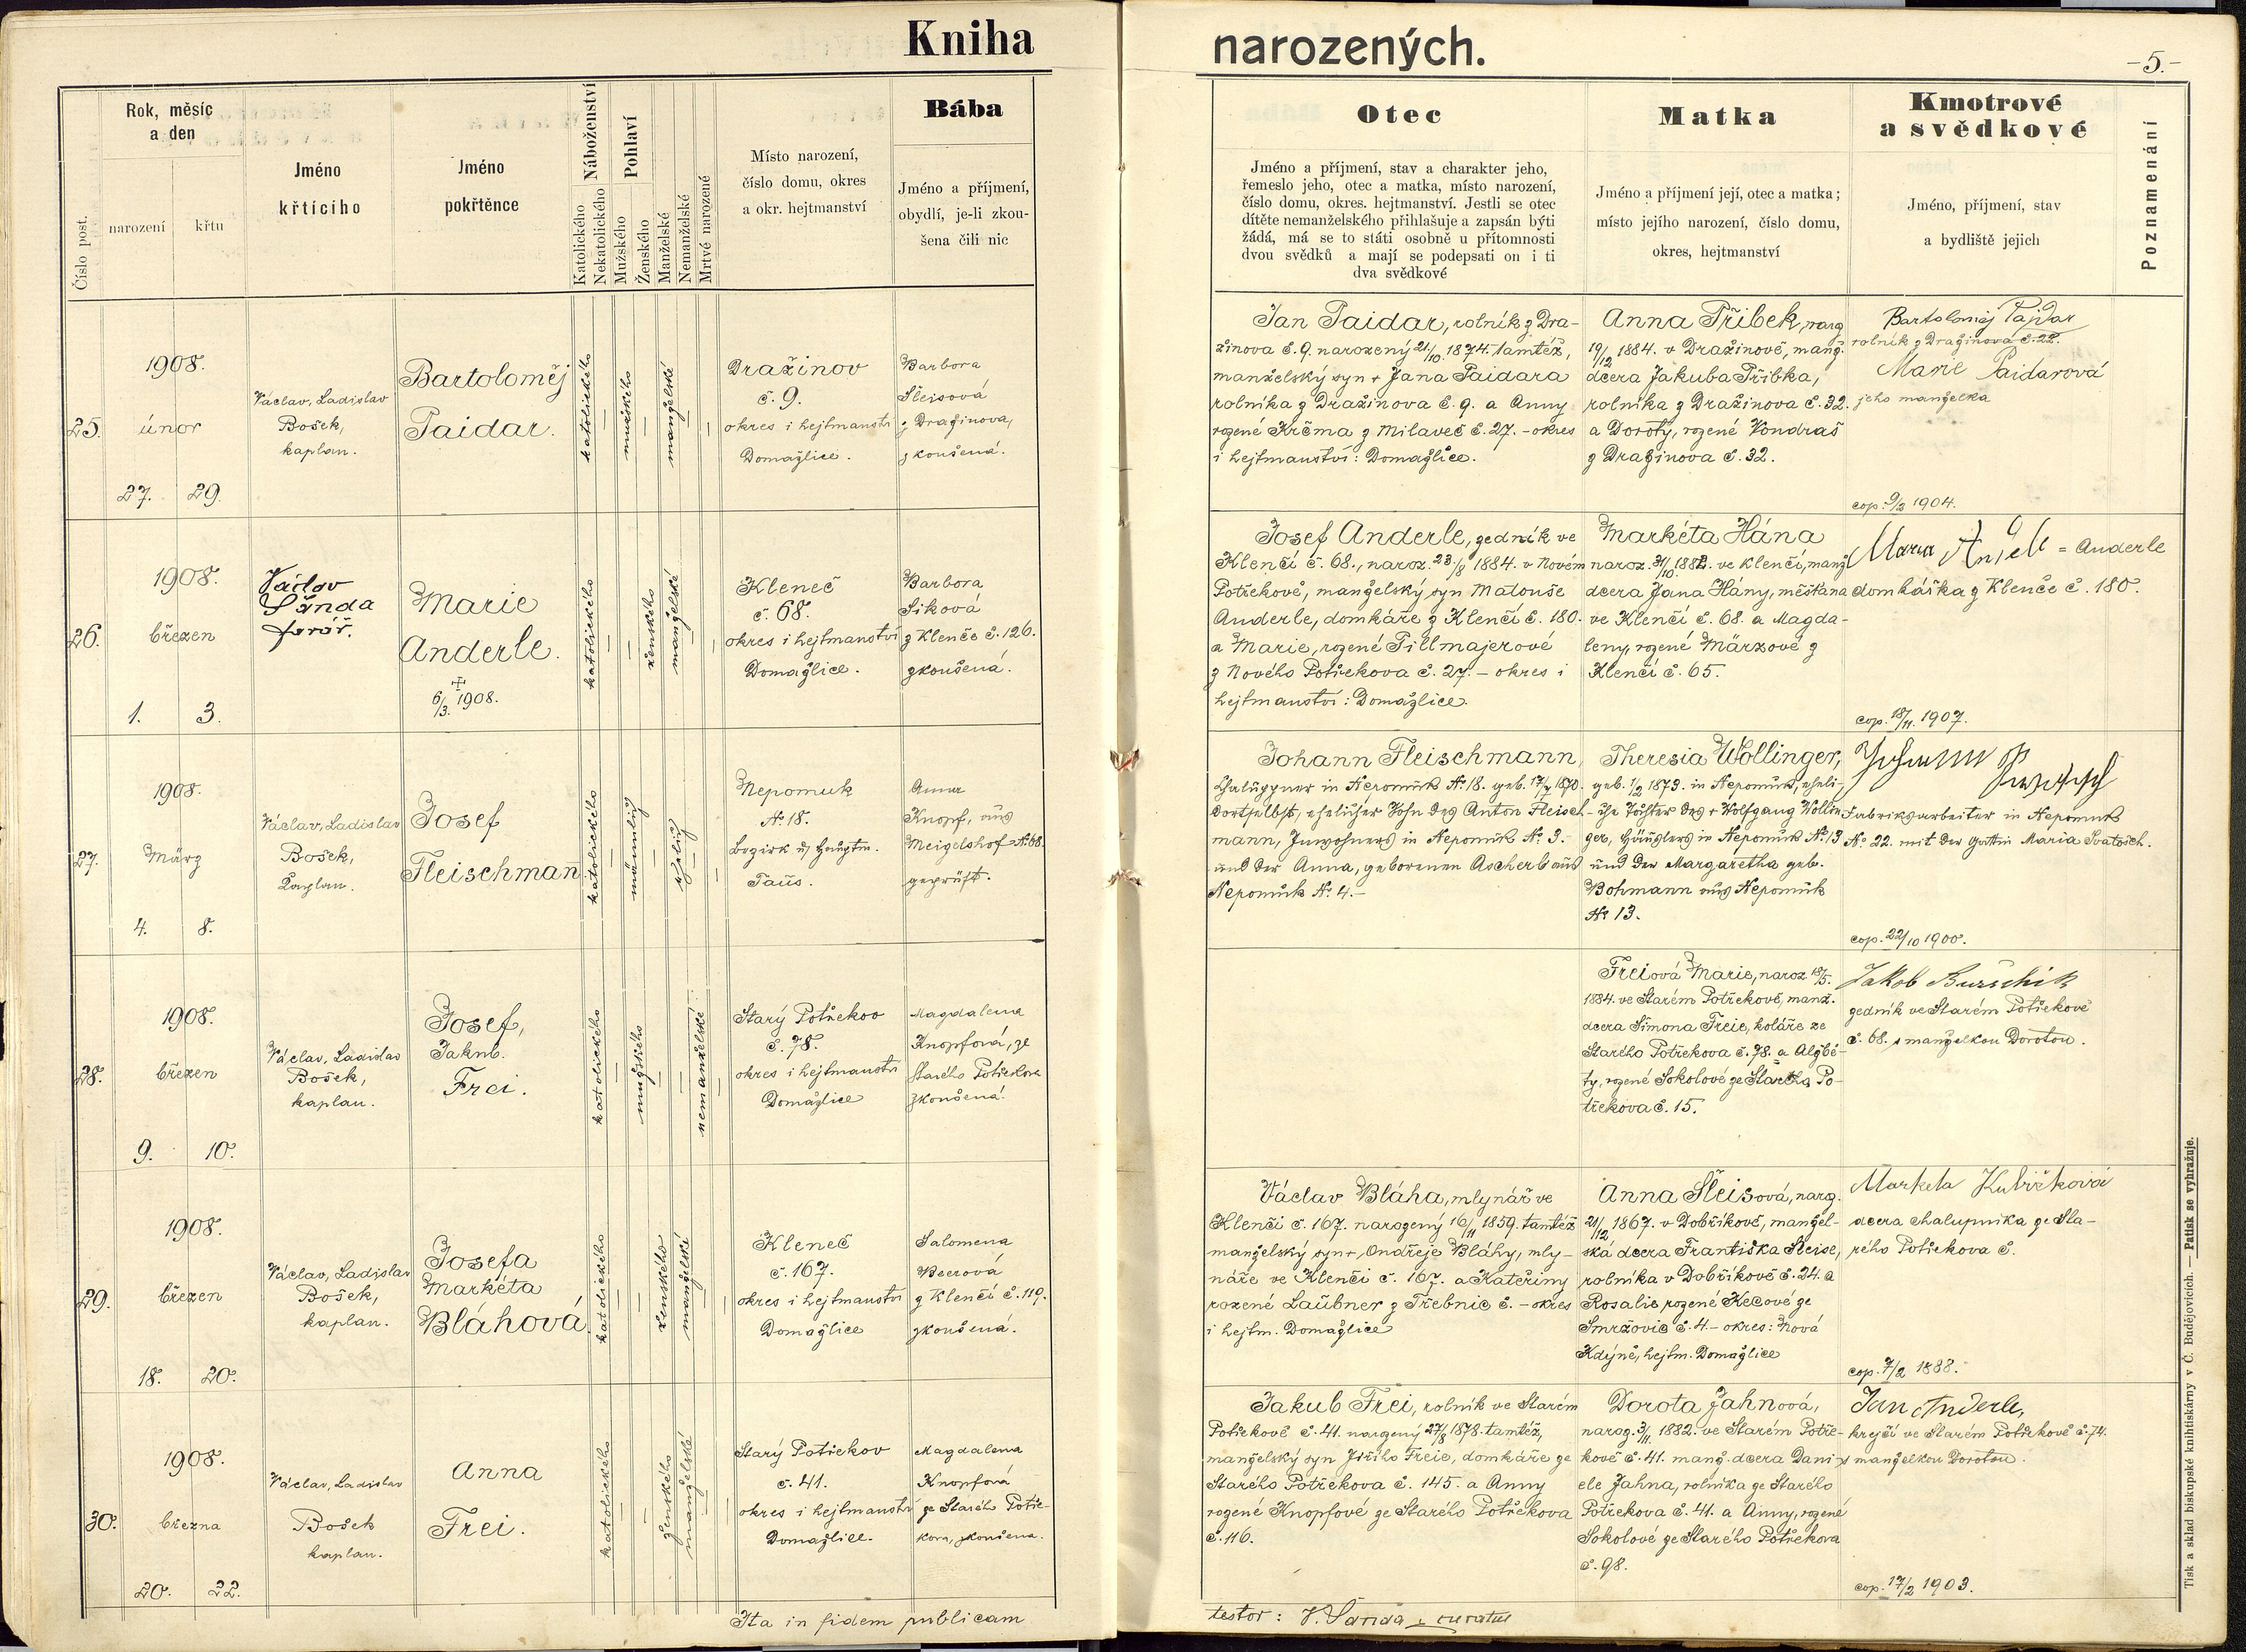 Kniha
narozených.
-5.-
Číslo post.
Rok, měsíc
a den
narození
křtu
Jméno
křtícího
Jméno
pokřtěnce
Náboženství
Katolického
Nekatolického
Pohlaví
Mužského
Ženského
Manželské
Nemanželské
Mrtvé narozené
Místo narození,
číslo domu, okres
a okr. hejtmanství
Bába
Jméno a příjmení,
obydlí, je-li zkou-
šena čili nic
Otec
Jméno a příjmení, stav a charakter jeho,
řemeslo jeho, otec a matka, místo narození,
číslo domu, okres. hejtmanství. Jestli se otec
dítěte nemanželského přihlašuje a zapsán býti
žádá, má se to státi osobně u přítomnosti
dvou svědků a mají se podepsati on i ti
dva svědkové
Matka
Jméno a příjmení její, otec a matka;
místo jejího narození, číslo domu,
okres, hejtmanství
Kmotrové
a svědkové
Jméno, příjmení, stav
a bydliště jejich
Poznamenání
25.
1908.
únor
27. 29.
Václav, Ladislav
Bošek,
kaplan.
Bartoloměj
Paidar.
katolického
mužského
manželské
Dražinov
č. 9.
okres i hejtmanství
Domažlice.
Barbora
Šleisová
z Dražinova,
zkoušená.
Jan Paidar, rolník z Dra-
žinova č. 9. narozený 21/10. 1874. tamtéž,
manželský syn + Jana Paidara
rolníka z Dražinova č. 9. a Anny
rozené Krčma z Milaveč č. 27. - okres
i hejtmanství: Domažlice.
Anna Přibek, naroz
19/12 1884. v Dražinově, manž.
dcera Jakuba Přibka,
rolníka z Dražinova č. 32.
a Doroty, rozené Vondraš
z Dražinova č. 32.
Bartoloměj Pajdar
rolník z Dražinova č. 22.
Marie Paidarová
jeho manželka
cop. 9/2 1904.
26.
1908.
březen
1. 3.
Václav
Šanda
farář.
Marie
Anderle.
+
6/3. 1908.
katolického
ženského
manželské
Kleneč
č. 68.
okres i hejtmanství
Domažlice.
Barbora
Siková
z Klenče č. 126.
zkoušená.
Josef Anderle, zedník ve
Klenčí č. 68., naroz. 23./8 1884. v Novém
Potřekově, manželský syn Matouše
Anderle, domkáře z Klenčí č. 180.
a Marie, rozené Pillmajerové
z Nového Potřekova č. 27. - okres i
hejtmanství: Domažlice.
Markéta Hána
naroz. 31/10. 1882. ve Klenčí, manž
dcera Jana Hány, měšťana
ve Klenčí č. 68. a Magda-
leny, rozené Märzové z
Klenčí č. 65.
= Anderle
domkářka z Klenče č. 180.
cop. 18/11. 1907.
27.
1908.
März
4. 8.
Václav, Ladislav
Bošek,
Kaplan.
Josef
Fleischmann
katolického
männlich
ehelich
Nepomuk
No. 18.
Bezirk u. Hauptm.
Taus.
Anna
Knopf, aus
Meigelshof No. 68.
geprüft.
Johann Fleischmann,
Chalupner in Nepomuk No. 18. geb. 17/7 1870.
dortselbst, ehelicher Sohn des Anton Fleisch-
mann, Inwohners in Nepomuk No. 3.
und der Anna, geborenen Ascherl aus
Nepomuk No. 4.-
Theresia Wollinger,
geb. 1/2 1873. in Nepomuk, eheli-
che Tochter des + Wolfgang Wollin-
ger, Häuslers in Nepomuk No. 13
und der Margaretha geb.
Bohmann aus Nepomuk
No 13.
Johann
Fabriksarbeiter in Nepomuk
No. 22. mit der Gattin Maria Svatosch.
cop. 22/10 1900.
28.
1908.
březen
9. 10.
Václav, Ladislav
Bošek,
kaplan.
Josef,
Jakub.
Frei.
katolického
mužského
nemanželské
Starý Potřekov
č. 78.
okres i hejtmanství
Domažlice
Magdalena
Knopfová, ze
Starého Potřekova
zkoušená.
Freiová Marie, naroz. 18/5.
1884. ve Starém Potřekově, manž.
dcera Šimona Freie, koláře ze
Starého Potřekova č. 78. a Alžbě-
ty, rozené Sokolové ze Starého Po-
třekova č. 15.
Jakob Burschik
zedník ve Starém Potřekově
č. 68. s manželkou Dorotou.
29.
1908.
březen
18. 20.
Václav, Ladislav
Bošek,
kaplan.
Josefa
Markéta
Bláhová
katolického
ženského
manželské
Kleneč
č. 167.
okres i hejtmanství
Domažlice
Salomena
Beerová
z Klenčí č. 119.
zkoušená.
Václav Bláha, mlynář ve
Klenčí č. 167. narozený 16/11 1859. tamtéž
manželský syn + Ondřeje Bláhy, mly-
náře ve Klenčí č. 167. a Kateřiny
rozené Laubner z Třebnic č. - okres
i hejtm. Domažlice
Anna Šleisová, naroz.
21/12 1867. v Dobříkově, manžel-
ská dcera Františka Šleise,
rolníka v Dobříkově č. 24. a
Rosalie rozené Kecové ze
Smržovic č. 4. - okres: Nová
Kdýně, hejtm. Domažlice
Marketa Kubičková
dcera chalupníka ze Sta-
rého Potřekova č.
cop. 7/2 1888.
30.
1908.
března
20. 22.
Václav, Ladislav
Bošek
kaplan.
Anna
Frei.
katolického
ženského
manželské
Starý Potřekov
č. 41.
okres i hejtmanství
Domažlice.
Magdalena
Knopfová
ze Starého Potře-
kova, zkoušena.
Jakub Frei, rolník ve Starém
Potřekově č. 41. narozený 27/8 1878. tamtéž,
manželský syn Jiřího Freie, domkáře ze
Starého Potřekova č. 145. a Anny
rozené Knopfové ze Starého Potřekova
č. 116.
Dorota Jahnová,
naroz. 3/11. 1882. ve Starém Potře-
kově č. 41. manž. dcera Dani-
ele Jahna, rolníka ze Starého
Potřekova č. 41. a Anny, rozené
Sokolové ze Starého Potřekova
č. 98.
Jan Anderle,
krejčí ve Starém Potřekově č. 74.
s manželkou Dorotou.
cop. 17/2 1903.
Ita in fidem publicam
testor: V. Šanda curatus
Tisk a sklad biskupské knihtiskárny v Č. Budějovicích. — Patisk se vyhražuje.